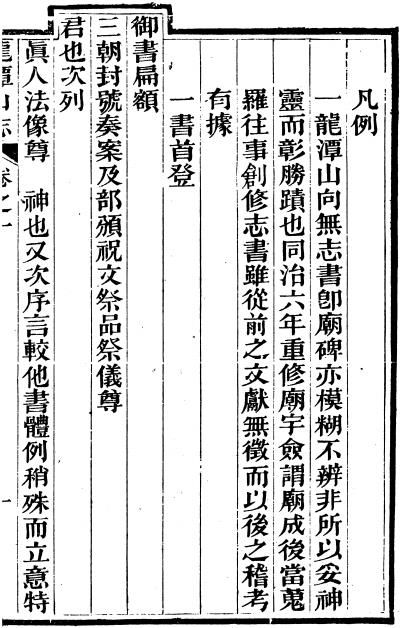 凡例
一龍潭山向無志書卽廟碑亦模糊不辨非所以妥神
靈而彰勝蹟也同治六年重修廟宇僉謂廟成後當蒐
羅往事創修志書雖從前之文獻無徵而以後之稽考
有據
一書首登
御書扁額
三朝封號奏案及部頒祝文祭品祭儀尊
君也次列
眞人法像尊　神也又次序言較他書體例稍殊而立意特
龍潭山志　卷之一　一